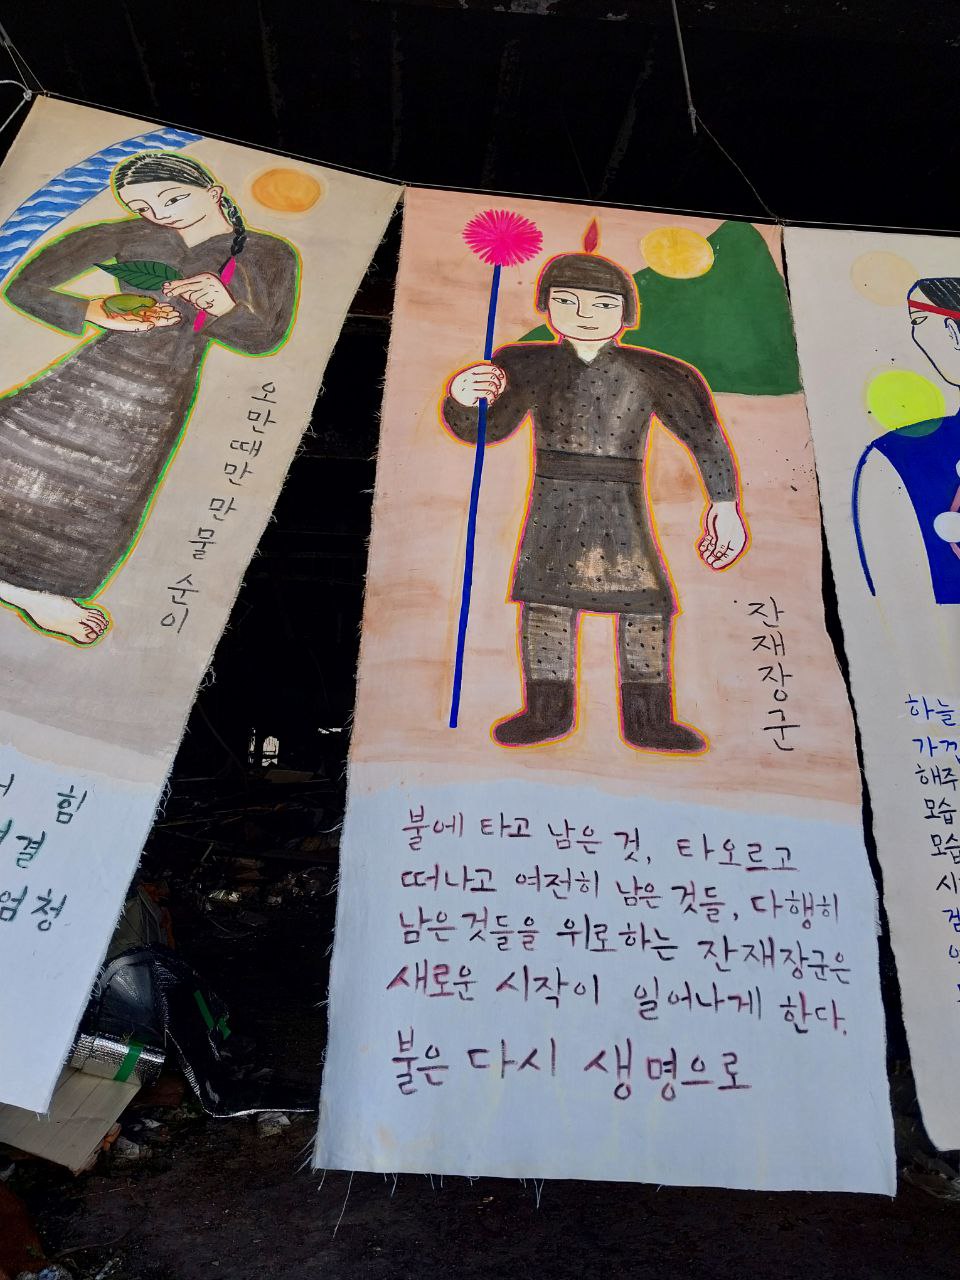 오만때만 만물 순이
힘
결
엄청
잔재장군
불에 타고 남은 것, 타오르고
떠나고 여전히 남은 것들, 다행히
남은 것들을 위로하는 잔재장군은
새로운 시작이 일어나게 한다.
불은 다시 생명으로
하늘
해주
모습
모습